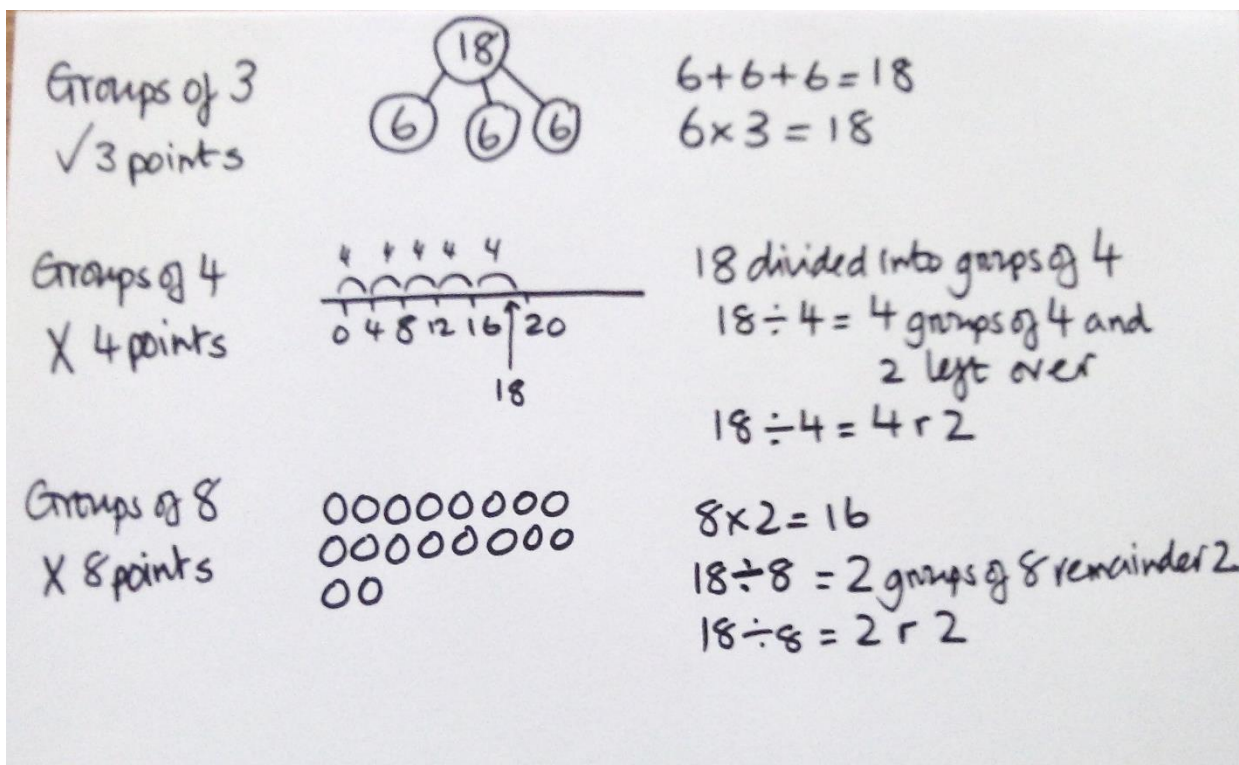 Groups of 3
✓ 3 points
18
6 6 6
6+6+6=18
6×3=18
Groups of 4
X 4 points
4 4 4 4 4
0 4 8 12 16 20
18
18 divided into groups of 4
18÷4= 4 groups of 4 and
2 left over
18÷4=4 r 2
Groups of 8
X 8 points
8×2=16
18÷8 = 2 groups of 8 remainder 2
18÷8 = 2 r 2